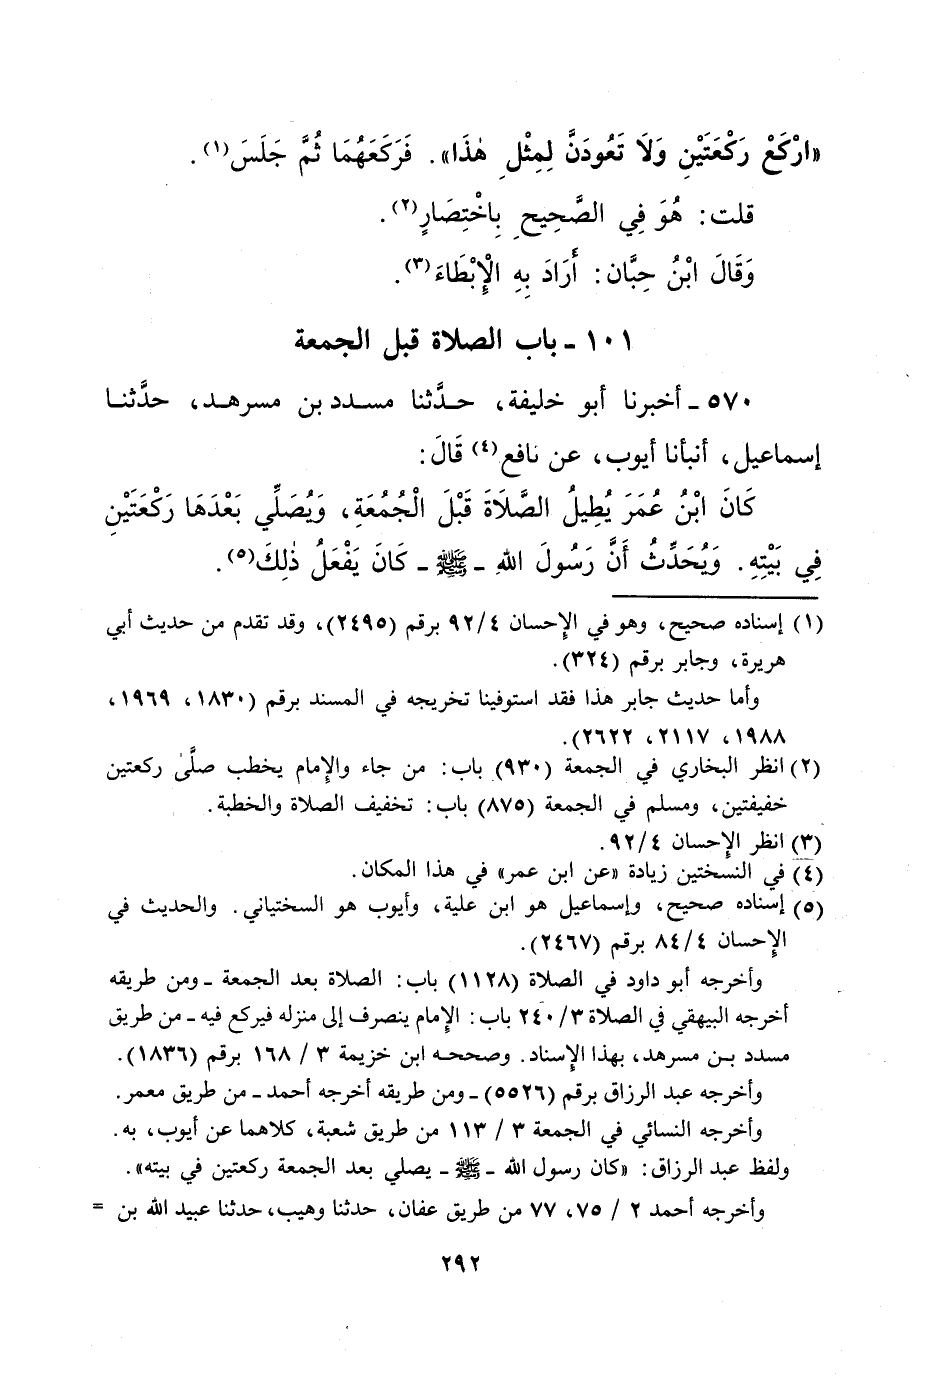 «ارْكَعْ رَكْعَتَيْنِ وَلَا تَعُودَنَّ لِمِثْلِ هٰذَا». فَرَكَعَهُمَا ثُمَّ جَلَسَ(١).
قلت: هُوَ فِي الصَّحِيحِ بِاخْتِصَارٍ(٢).
وَقَالَ ابْنُ حِبَّان: أَرَادَ بِهِ الْإِبْطَاءَ(٣).
١٠١ - باب الصلاة قبل الجمعة
٥٧٠ - أخبرنا أبو خليفة، حدَّثنا مسدد بن مسرهد، حدَّثنا
إسماعيل، أنبأنا أيوب، عن نافع(٤) قَالَ:
كَانَ ابْنُ عُمَرَ يُطِيلُ الصَّلَاةَ قَبْلَ الْجُمُعَةِ، وَيُصَلِّي بَعْدَهَا رَكْعَتَيْنِ
فِي بَيْتِهِ. وَيُحَدِّثُ أَنَّ رَسُولَ اللهِ - ﷺ - كَانَ يَفْعَلُ ذٰلِكَ(٥).
(١) إسناده صحيح، وهو في الإحسان ٩٢/٤ برقم (٢٤٩٥)، وقد تقدم من حديث أبي
هريرة، وجابر برقم (٣٢٤).
وأما حديث جابر هذا فقد استوفينا تخريجه في المسند برقم (١٨٣٠، ١٩٦٩،
١٩٨٨، ٢١١٧، ٢٦٢٢).
(٢) انظر البخاري في الجمعة (٩٣٠) باب: من جاء والإمام يخطب صلَّى ركعتين
خفيفتين، ومسلم في الجمعة (٨٧٥) باب: تخفيف الصلاة والخطبة.
(٣) انظر الإحسان ٩٢/٤.
(٤) في النسختين زيادة «عن ابن عمر» في هذا المكان.
(٥) إسناده صحيح، وإسماعيل هو ابن علية، وأيوب هو السختياني. والحديث في
الإحسان ٨٤/٤ برقم (٢٤٦٧).
وأخرجه أبو داود في الصلاة (١١٢٨) باب: الصلاة بعد الجمعة - ومن طريقه
أخرجه البيهقي في الصلاة ٢٤٠/٣ باب: الإمام ينصرف إلى منزله فيركع فيه - من طريق
مسدد بن مسرهد، بهذا الإسناد. وصححه ابن خزيمة ٣ / ١٦٨ برقم (١٨٣٦).
وأخرجه عبد الرزاق برقم (٥٥٢٦) - ومن طريقه أخرجه أحمد - من طريق معمر.
وأخرجه النسائي في الجمعة ٣ / ١١٣ من طريق شعبة، كلاهما عن أيوب، به.
ولفظ عبد الرزاق: «كان رسول الله - ﷺ - يصلي بعد الجمعة ركعتين في بيته».
وأخرجه أحمد ٢ / ٧٥، ٧٧ من طريق عفان، حدثنا وهيب، حدثنا عبيد الله بن =
٢٩٢